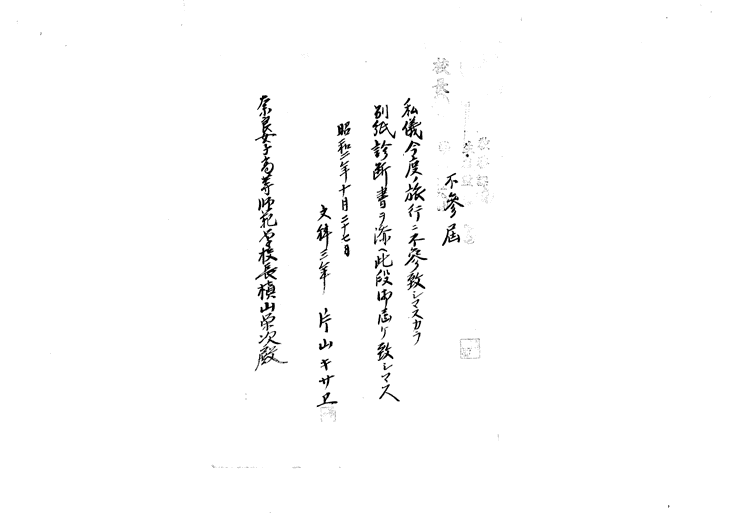 不參屆
私儀今度ノ旅行ニ不參致シマスカラ
別紙診断書ヲ添ヘ此段御屆ケ致シマス
昭和二年十月二十七日
文科三年 片山キサヱ
奈良女子高等師範学校長槙山栄次殿
校長